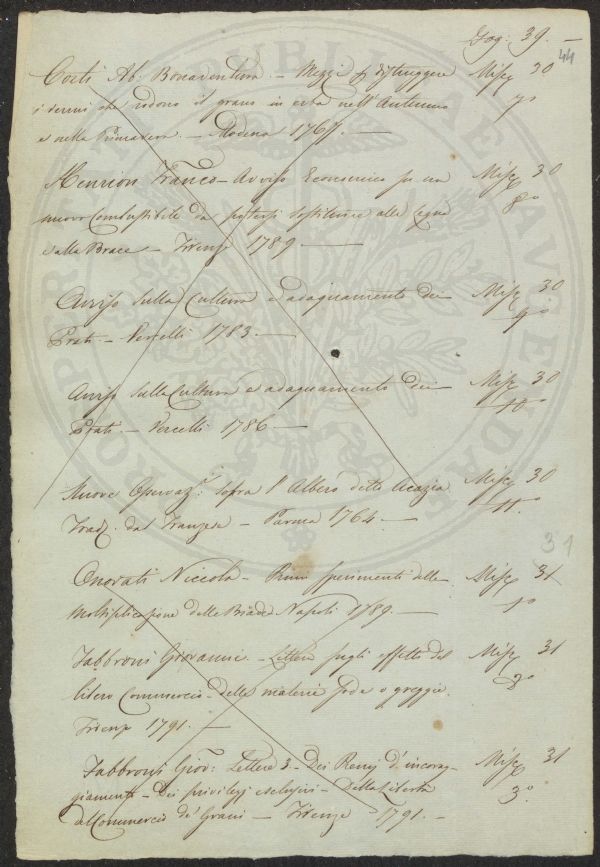 Fog: 39. —
44
Corti Ab: Bonaventura. — Mezzi p distruggere Misc 30
i vermi che rodono il grano in erba nell'Autunno 7°
e nella Primavera. — Modena 1767. —
Henrion Franco — Avviso Economico su un Misc 30
nuovo Combustibile da potersi sostituire alle Legna 8°
e alla Brace — Firenze 1789 —
Avviso sulla Cultura e adaquamento dei Misc 30
Prati — Vercelli 1783. — 9°
Avviso sulla Cultura e adaquamento dei Misc 30
Prati. — Vercelli 1786 — 10°
Nuove Osservaz.i sopra l'Albero detto Acazia Misc 30
Trad. dal Franzese — Parma 1764. — 11°
31
Onorati Niccola — sperimenti della Misc 31
moltiplicazione delle Biade Napoli 1789. — 1°
Fabbroni Giovanni. — Lettere sugli effetti del Misc 31
libero Commercio delle materie sode o greggie. 2°
Firenze 1791. —
Fabbroni Giov: Lettere 3. — Dei Premj d'incorag- Misc 31
giamento — Dei privilegj esclusivi — Della Libertà 3°.
del Commercio de' Grani — Firenze 1791. —
PUBLICAE